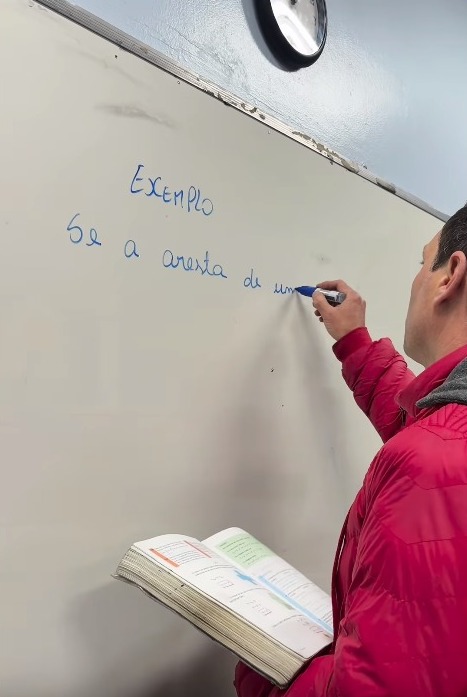 EXEMPLO
Se a aresta de um